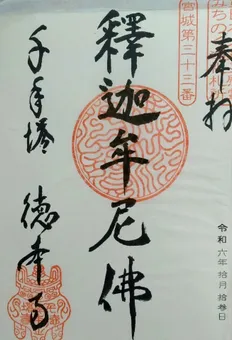 奉拝
宮城第三十三番
釋迦牟尼佛
千手塔
徳本寺
令和六年拾月拾参日